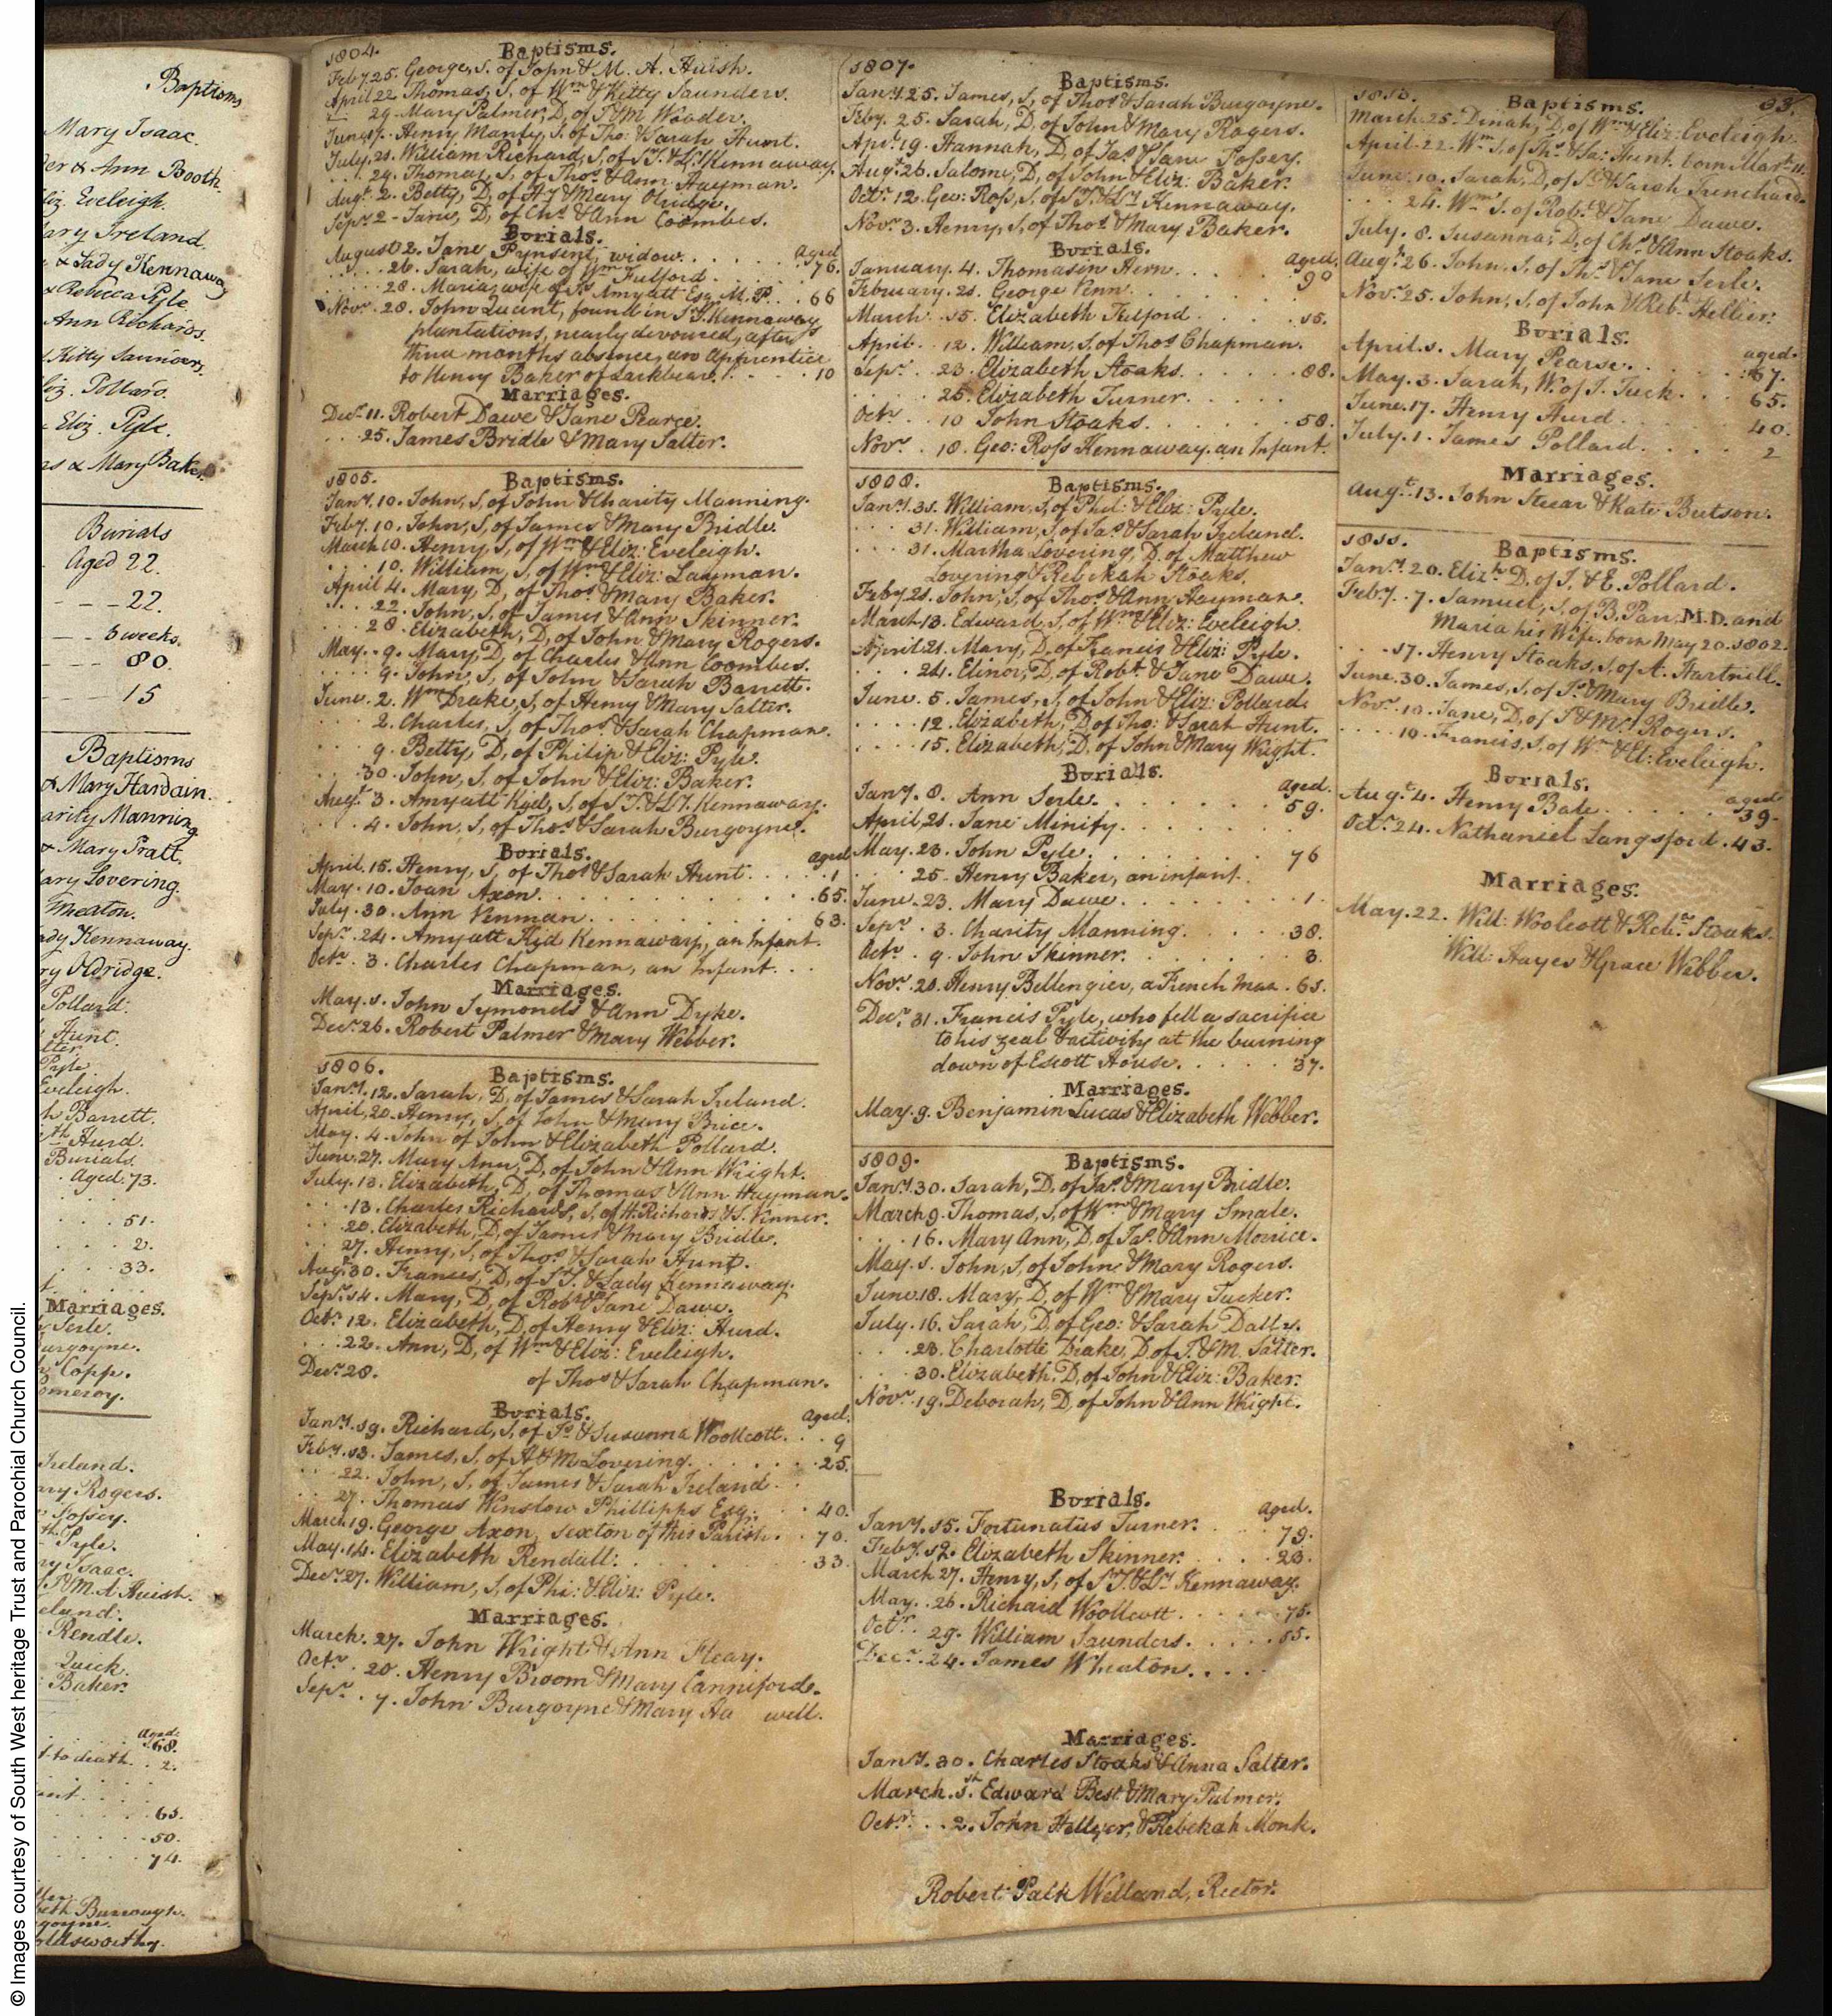 Baptisms
Mary Isaac.
& Ann Booth.
Eveleigh.
Ireland.
& Lady Kennaway
& Rebecca Pyle
Ann Richards.
Kitty Saunders.
Pollard.
Eliz. Pyle.
& Mary Baker.
Burials
Aged 22.
- - - 22.
- - 5 weeks.
- - - 80.
- - - 15
Baptisms
& Mary Hardain.
Manning
& Mary Pratt.
Lovering.
Wheaton.
Kennaway.
Oldridge.
Pollard.
Hunt.
Pyle.
Eveleigh.
Barrett.
Hurd.
Burials.
Aged. 73.
51.
2.
33.
Marriages.
Serle.
Copp.
Pomeroy.
Ireland.
Rogers.
Possey.
Pyle.
Isaac.
& M. A. Huish.
Rendle.
Quick.
Baker.
Aged.
68.
to death . 2.
65.
50.
74.
Burrough.
1804.
Baptisms.
Feby. 25. George, S. of John & M. A. Huish.
April 22 Thomas, S, of Wm & Kitty Saunders.
29. Mary Palmer, D, of J & M Wooder.
June 17. Henry Manfy, S. of Tho: & Sarah Hunt.
July. 21. William Richard, S, of Sr. J. & Ly. Kennaway.
. . . 29. Thomas, S, of Thos & Ann Hayman.
Augt. 2. Betty, D, of & Mary Oldridge.
Sepr. 2 - Jane, D, of Chs & Ann Coombes.
Burials.
aged
August 2. Jane Pynsent, widow. . . . . . 76.
. . . . 26. Sarah, wife of Wm Fulford . . . .
. . . . 28. Maria, wife of Js Amyatt Esq. M. P. . . 66
Novr. 28. John Quent, found in Sr J. Kennaway
plantations, nearly devoured, after
three months absence, an apprentice
to Henry Baker of Larkbeare. . . . . 10
Marriages.
Decr. 11. Robert Dawe & Jane Pearce.
. . . 25. James Bridle & Mary Salter.
1805.
Baptisms.
Jany. 10. John, S, of John & Charity Manning.
Feby. 10. John, S, of James & Mary Bridle.
March 10. Henry, S, of Wm & Eliz: Eveleigh.
. . . 10. William, S, of Wm & Eliz: Layman.
April 4. Mary, D, of Thos & Mary Baker.
. . . 22. John, S, of James & Ann Skinner.
. . . 28. Elizabeth, D, of John & Mary Rogers.
May. . 9. Mary, D, of Charles & Ann Coombes.
. . . . 9. John, S, of John & Sarah Barrett.
June. 2. Wm Drake, S, of Henry & Mary Salter.
. . . 2. Charles, S, of Thos & Sarah Chapman.
. . . 9. Betty, D, of Philip & Eliz: Pyle.
. . . 30. John, S. of John & Eliz: Baker.
Augt. 3. Amyatt Kyd, S, of Sr J. & Ly. Kennaway.
. . . 4. John, S, of Thos & Sarah Burgoyne.
Burials.
aged
April. 15. Henry, S, of Thos & Sarah Hunt . . . . 1
May. 10. Joan Axon. . . . . . . . 65.
July. 30. Ann Venman. . . . . . . 63.
Sepr. 24. Amyatt Kyd Kennaway, an Infant.
Octr. 3. Charles Chapman, an Infant. . .
Marriages.
May. 1. John Symonds & Ann Dyke.
Decr. 26. Robert Palmer & Mary Webber.
1806.
Baptisms.
Jany. 12. Sarah, D, of James & Sarah Ireland.
April, 20. Henry, S, of John & Mary Brice.
May. 4. John of John & Elizabeth Pollard.
June. 27. Mary Ann, D, of John & Ann Wright.
July. 13. Elizabeth, D, of Thomas & Ann Hayman.
. . . 13. Charles Richards, S, of H. Richards & S. Venner.
. . . 20. Elizabeth, D, of James & Mary Bridle.
. . . 27. Henry, S, of Thos & Sarah Hunt.
Augt. 30. Frances, D, of Sr J. & Lady Kennaway.
Sepr. 14. Mary, D, of Robt & Jane Dawe.
Octr. 12. Elizabeth, D, of Henry & Eliz: Hurd.
. . . 22. Ann, D, of Wm & Eliz: Eveleigh.
Decr. 28. of Thos & Sarah Chapman.
Burials.
aged.
Jany. 19. Richard, S, of Js & Susanna Woollcott. . . 9
Feby. 13. James, S, of H & M Lovering. . . . . 25.
. . . 22. John, S, of James & Sarah Ireland . .
. . 27. Thomas Winslow Phillipps Esq. . . 40.
March. 19. George Axon, Sexton of this Parish. . . 70.
May. 14. Elizabeth Rendall: . . . . . 33.
Decr. 27. William, S, of Phi: & Eliz: Pyle.
Marriages.
March. 27. John Wright & Ann Fleay.
Octr. . 20. Henry Broom & Mary Canniforde.
Sepr. . 7. John Burgoyne & Mary Ha well.
1807.
Baptisms.
Jany. 25. James, S, of Thos & Sarah Burgoyne.
Feby. 25. Sarah, D, of John & Mary Rogers.
Apr. 19. Hannah, D, of Jas & Jane Possey.
Augt. 26. Salome, D, of John & Eliz: Baker.
Octr. 12. Geo: Ross, S, of Sr J. & Ly Kennaway.
Novr. 3. Henry, S, of Thos & Mary Baker.
Burials.
aged.
January. 4. Thomasin Hern . . . . 90
February. 21. George Venn . . . .
March . 15. Elizabeth Fulford . . . . 15.
April. . 12. William, S, of Thos Chapman.
Sepr. . 23. Elizabeth Stoaks. . . . . . 88.
. . . . 25. Elizabeth Turner. . . . .
Octr. . 10 John Stoaks. . . . . . 58.
Novr. . 18. Geo: Ross Kennaway, an Infant.
1808.
Baptisms.
Jany. 31. William, S, of Phil: & Eliz: Pyle.
. . . 31. William, S, of Jas & Sarah Ireland.
. . . 31. Martha Lovering, D. of Matthew
Lovering & Rebekah Stoaks.
Feby 21. John, S, of Thos & Ann Hayman.
March 13. Edward, S, of Wm & Eliz: Eveleigh.
April 21. Mary, D, of Francis & Eliz: Pyle.
. . . 24. Elinor, D, of Robt & Jane Dawe.
June. 5. James, S, of John & Eliz: Pollard.
. . . . 12. Elizabeth, D, of Tho: & Sarah Hunt.
. . . . 15. Elizabeth, D. of John & Mary Wright.
Burials.
aged.
Jany. 8. Ann Serle. . . . . . . 59.
April, 21. Jane Minify. . . . . . .
May. 23. John Pyle. . . . . . . 76
. . . 25. Henry Baker, an infant.
June. 23. Mary Dawe. . . . . . . 1.
Sepr. . 3. Charity Manning. . . . . 38.
Octr. . 9. John Skinner. . . . . . 3.
Novr. 20. Henry Bellengier, a French Man . 61.
Decr. 31. Francis Pyle, who fell a sacrifice
to his zeal & activity at the burning
down of Escott House. . . . . . 37.
Marriages.
May. 9. Benjamin Lucas & Elizabeth Webber.
1809.
Baptisms.
Jany. 30. Sarah, D, of Jas & Mary Bridle.
March 9. Thomas, S, of Wm & Mary Smale.
. . . 16. Mary Ann, D, of Js. & Ann Morrice.
May. 1. John, S, of John & Mary Rogers.
June 18. Mary, D, of Wm & Mary Tucker.
July. 16. Sarah, D, of Geo: & Sarah Dally.
. . . 23. Charlotte Drake, D, of J. & M. Salter.
. . . 30. Elizabeth, D, of John & Eliz: Baker.
Novr. 19. Deborah, D, of John & Ann Wright.
Burials.
aged.
Jany. 15. Fortunatus Turner. . . . 79.
Feby. 12. Elizabeth Skinner. . . . . 23.
March 27. Henry, S, of Sr J. & Ly Kennaway.
May. . 26. Richard Woollcott . . . . . 75.
Octr. . 29. William Saunders. . . . . 55.
Decr. . 24. James Wheaton. . . . .
Marriages.
Jany. 30. Charles Stoaks & Anna Salter.
March. 1st. Edward Best & Mary Palmer.
Octr. . . 2. John Hellyer, & Rebekah Monk.
Robert Palk Welland, Rector.
33.
1810.
Baptisms.
March 25. Dinah, D, of Wm & Eliz: Eveleigh.
April. 22. Wm S, of Ths & Sa: Hunt. born Mar. 11.
June. 10. Sarah, D, of & Sarah Trenchard.
. . . 24. Wm S. of Robt & Jane Dawe.
July. 8. Susanna, D, of Chs & Ann Stoaks.
Augt. 26. John, S, of Ths & Jane Serle.
Novr. 25. John, S, of John & Reb. Hellier.
Burials.
aged.
April. 1. Mary Pearse. . . . . 67.
May. 3. Sarah, W. of J. Tuck . . . 65.
June. 17. Henry Hurd . . . . . 40.
July. 1. James Pollard. . . . . 2
Marriages.
Augt. 13. John Stear & Kate Butson.
1811.
Baptisms.
Jany. 20. Elizh D, of J. & E. Pollard.
Feby. . 7. Samuel, S, of B. Parr, M.D. and
Maria his Wife, born May 20. 1802.
. . . 17. Henry Stoaks, S, of A. Hartnell.
June. 30. James, S, of Js & Mary Bridle.
Novr. 10. Jane, D, of J & My Rogers.
. . . . 10. Francis, S, of Wm & El: Eveleigh.
Burials.
aged.
Augt. 4. Henry Bale . . . . . 39.
Octr. 24. Nathaniel Langsford . 43.
Marriages.
May. 22. Will: Woolcott & Stoaks.
Will: Hayes & Grace Webber.
© Images courtesy of South West heritage Trust and Parochial Church Council.